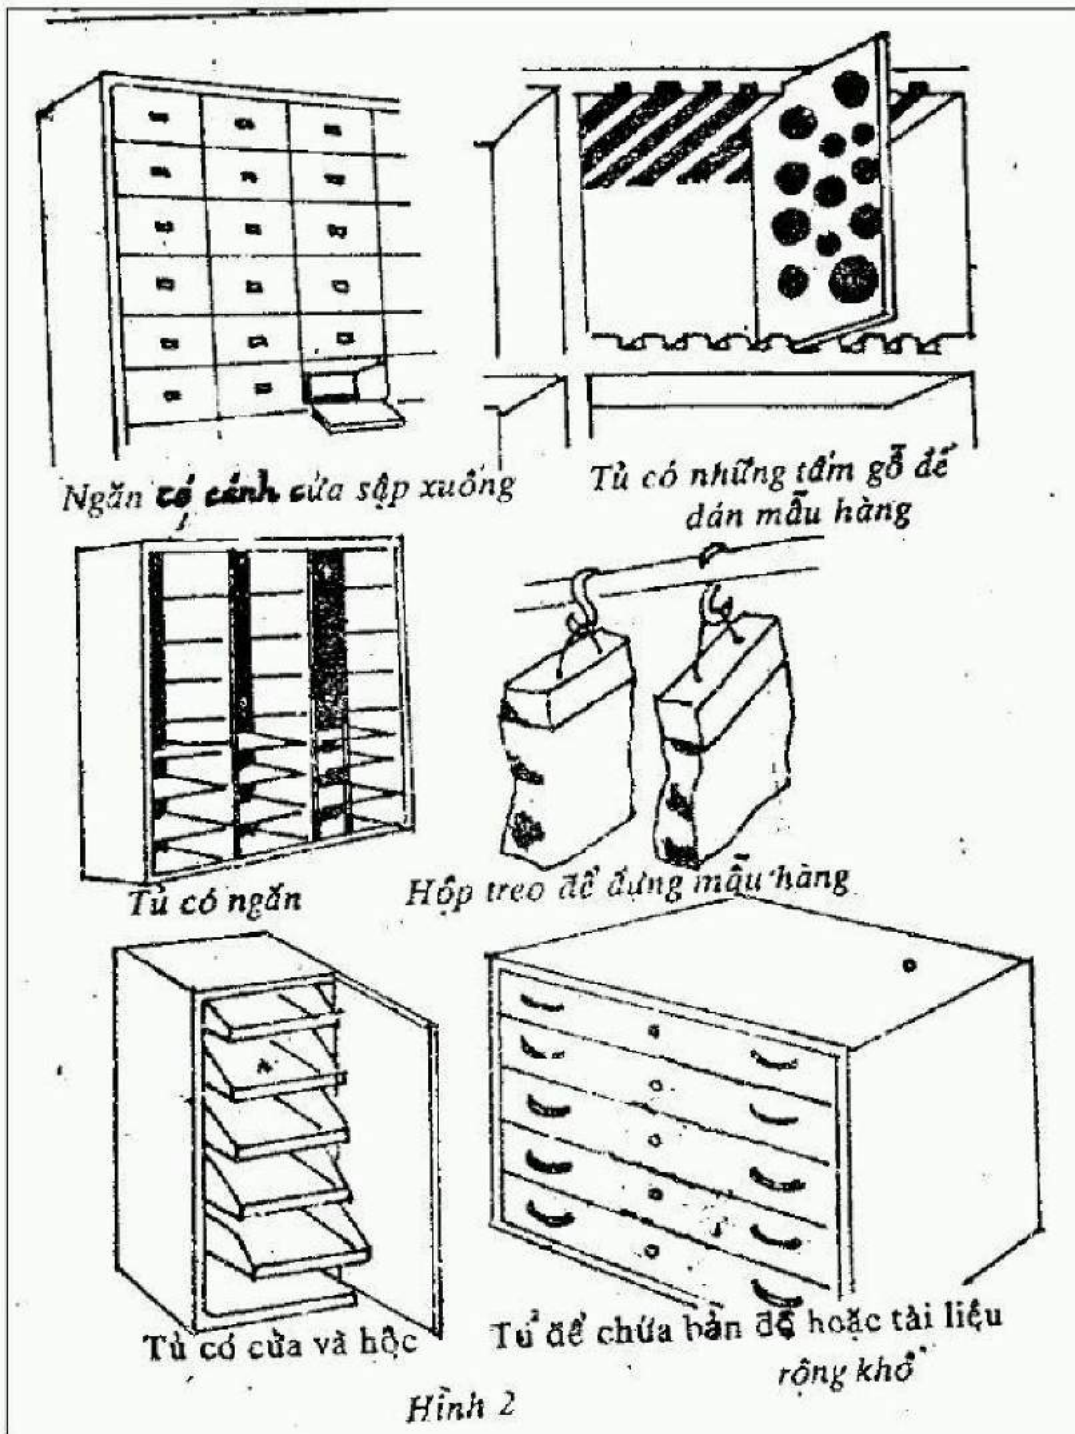 Ngăn có cánh cửa sập xuống
Tủ có những tấm gỗ để
dán mẫu hàng
Tủ có ngăn
Hộp treo để đựng mẫu hàng
Tủ có cửa và hộc
Tủ để chứa bản đồ hoặc tài liệu
rộng khổ
Hình 2